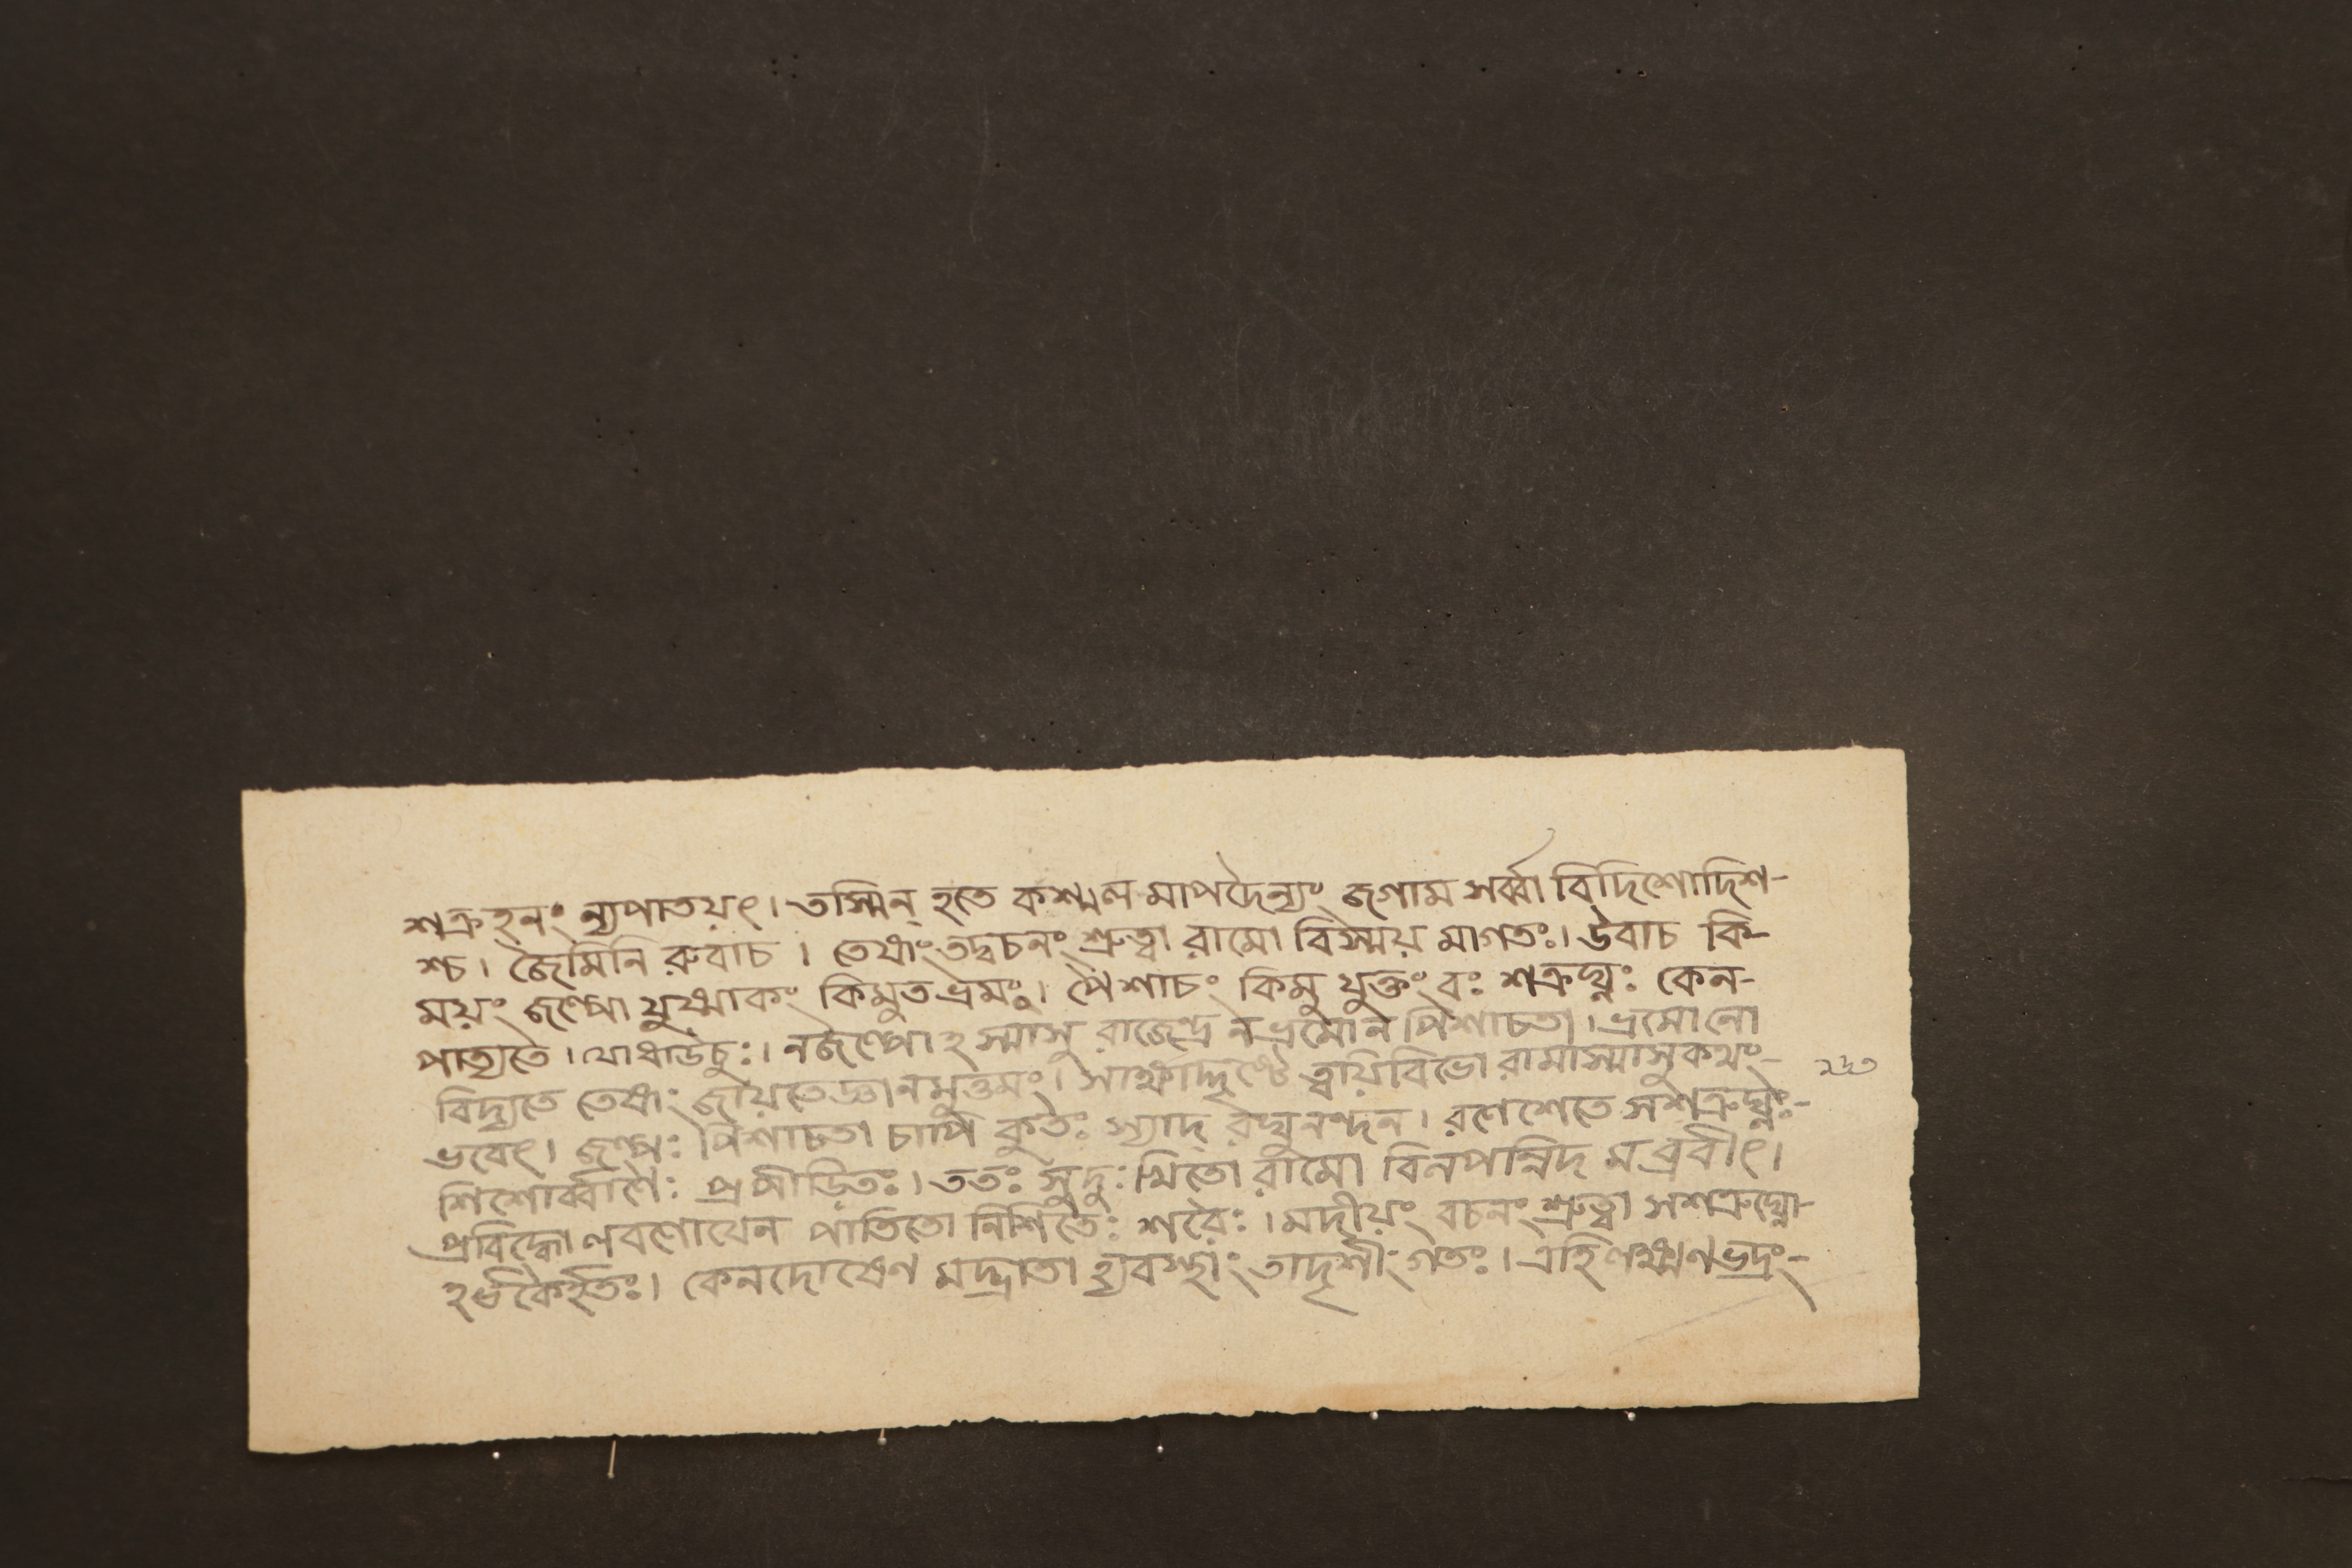 শত্রুহনং ন্যপাতয়ৎ। তস্মিন্ হতে কশ্মল মাপদৈন্যং জগাম সর্ব্বা বিদিশোদিশ-
শ্চ। জৈমিনি রুবাচ। তেষাং তদ্বচনং শ্রুত্বা রামো বিস্ময় মাগতঃ। উবাচ কি-
ময়ং জল্পো যুষ্মাকং কিমুত ভ্রমঃ। পৈশাচং কিমু যুক্তং বঃ শত্রুঘ্নঃ কেন-
পাত্যতে। যোধাঊচুঃ। নজল্পোঽস্মাসু রাজেন্দ্র নভ্রমোন পিশাচতা। ভ্রমোনো
বিদ্যতে তেষাং জায়তেজ্ঞানমুত্তমং। সাক্ষাদ্দৃষ্টে ত্বয়িবিভো রামাস্মাসুকথং-
ভবেৎ। জল্পঃ পিশাচতা চাপি কুতঃ স্যাদ্ রঘুনন্দন। রণেশেতে সশত্রুঘ্নঃ-
শিশোর্ব্বাণৈঃ প্রপীড়িতঃ। ততঃ সুদুঃখিতো রামো বিলপন্নিদ মব্রবীৎ।
প্রবিদ্ধো লবণোযেন পাতিতো নিশিতৈঃ শরৈঃ। মদীয়ং বচনং শ্রুত্বা সশত্রুঘ্নো-
ঽর্ভকৈর্হতঃ। কেনদোষেণ মদ্ভ্রাতা হ্যবস্থাং তাদৃশীং গতঃ। এহি লক্ষ্মণভদ্রং-